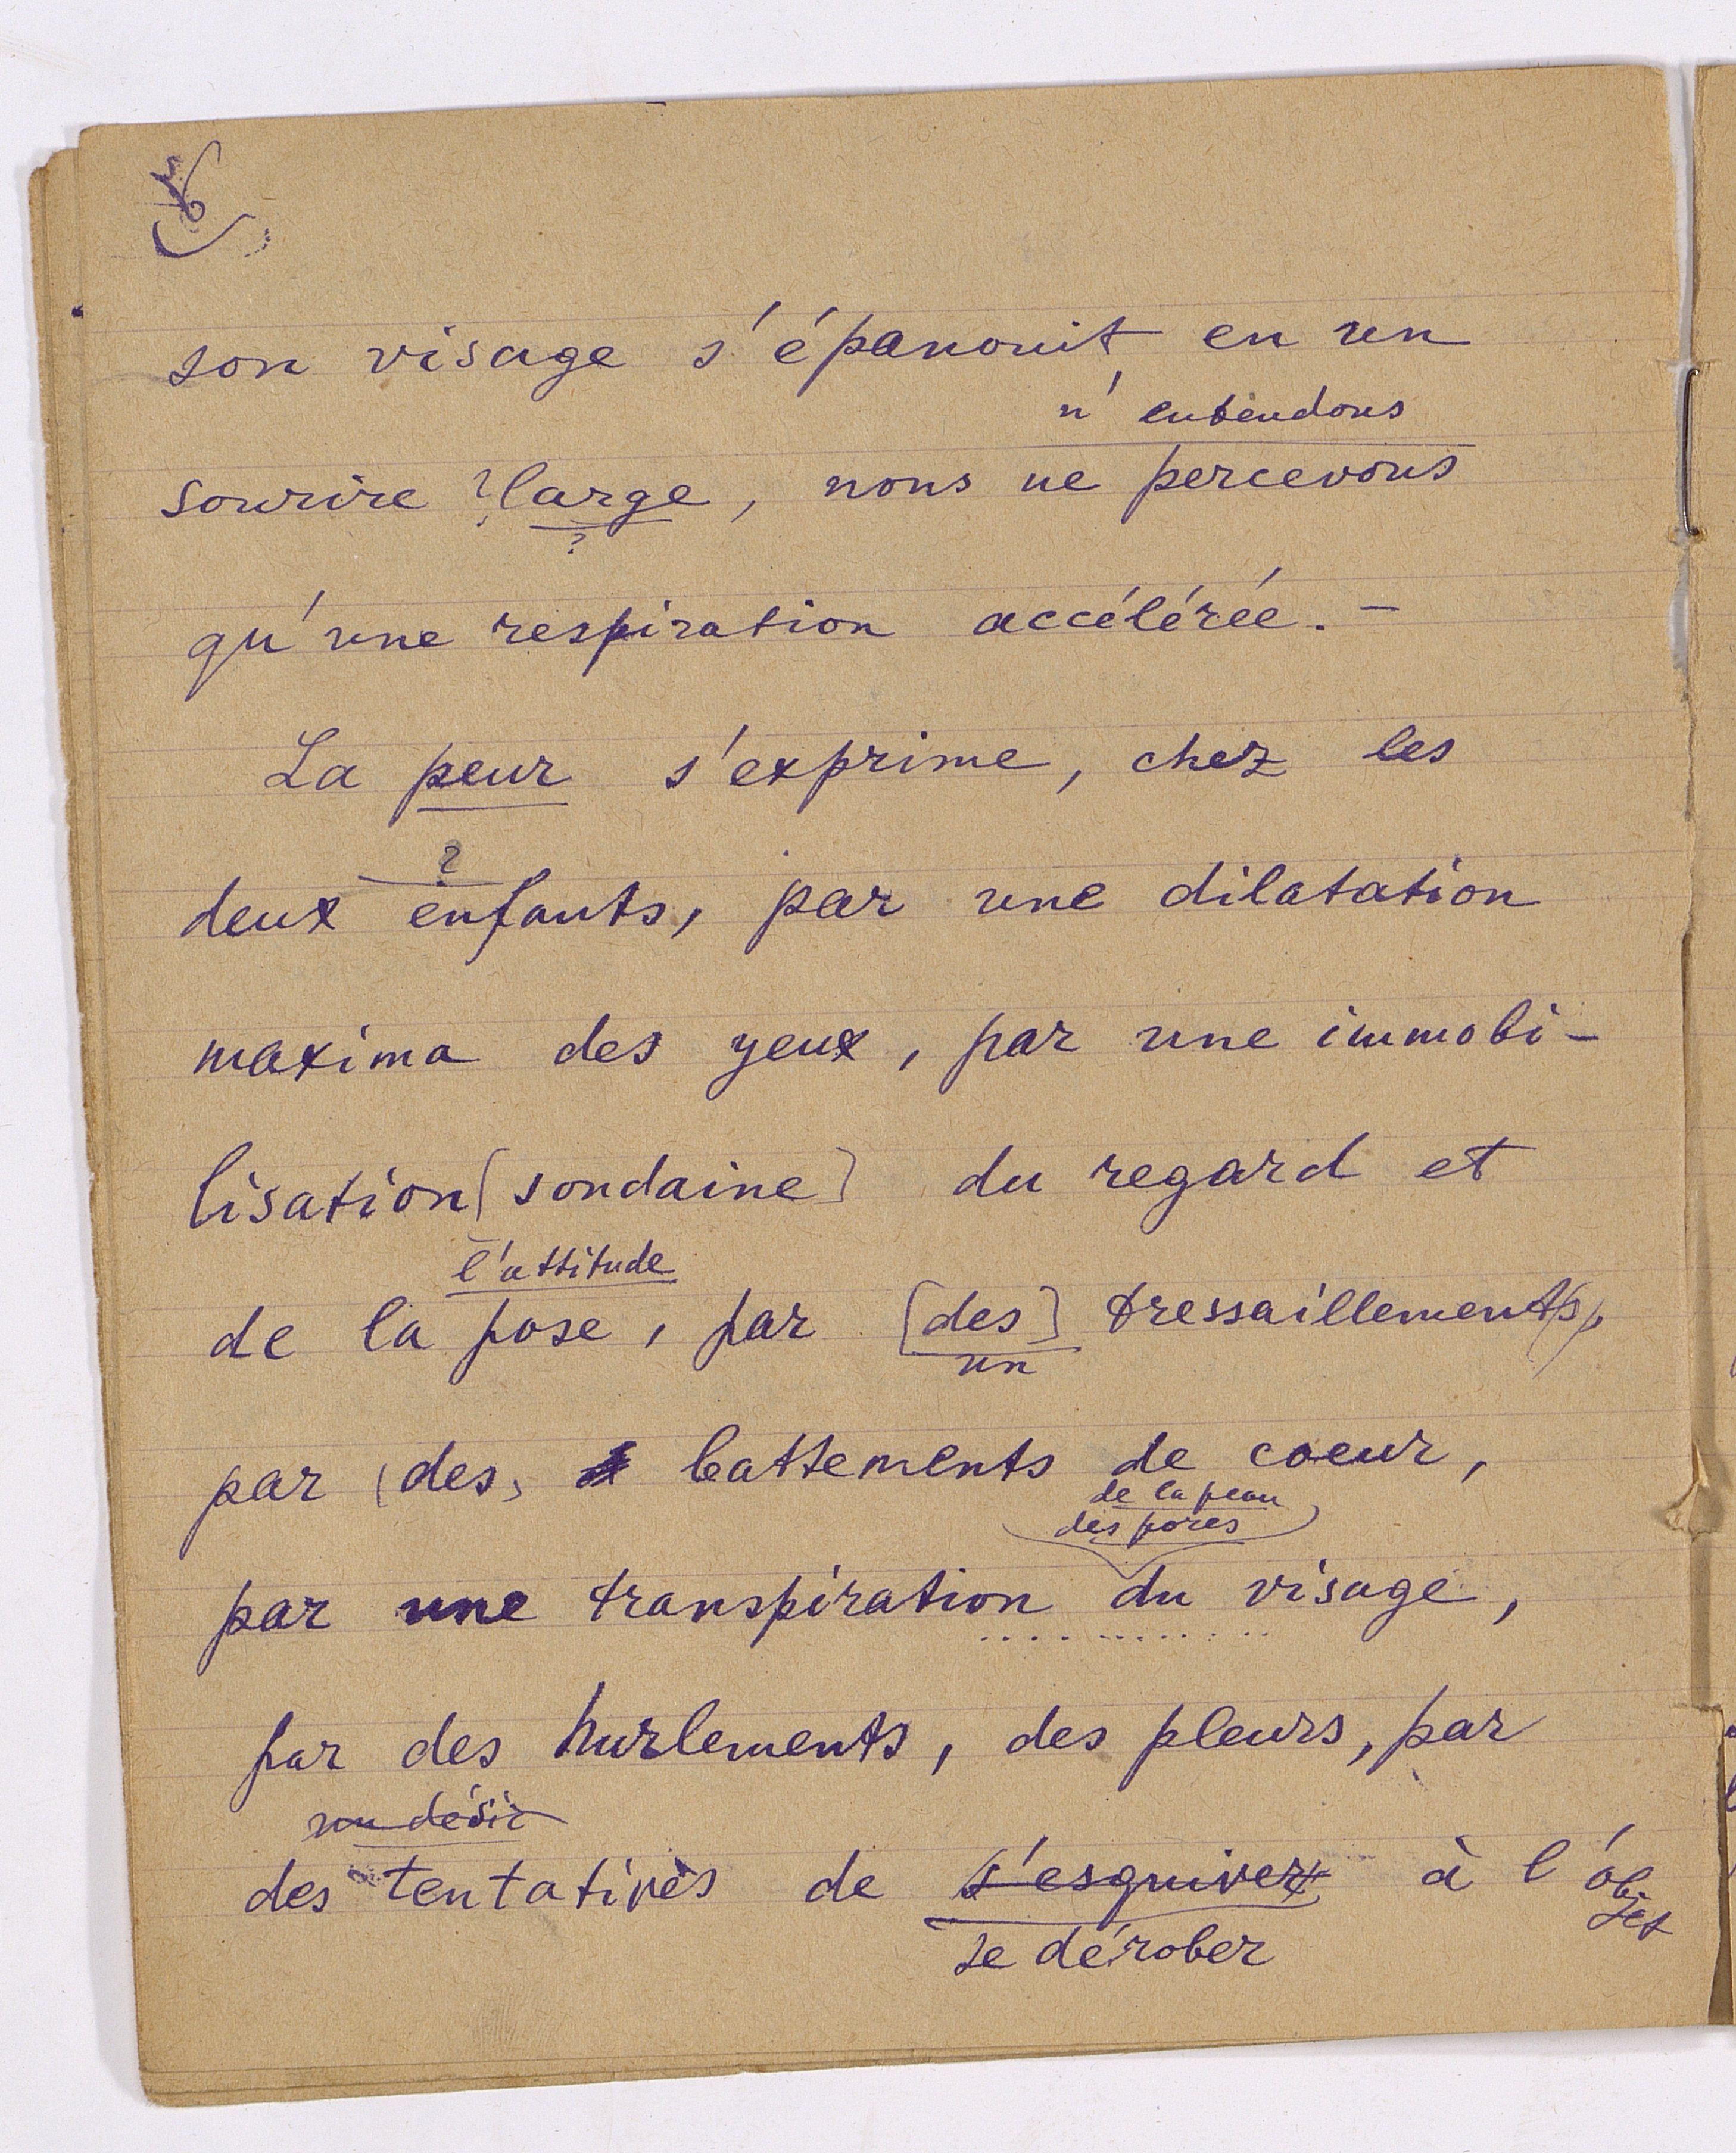 6
son visage s'épanouit en un
n' entendons
sourire ? large, nous ne percevons
?
qu'une respiration accélérée. –
La peur s'exprime, chez les
?
deux enfants, par une dilatation
maxima des yeux, par une immobi-
lisation [soudaine] du regard et
l'attitude
de la pose, par [des] tressaillement(s),
un
par (des) battements de coeur,
de la peau
des pores
par une transpiration du visage,
par des hurlements, des pleurs, par
un désir
des tentatives de s'esquiver à l'objet
se dérober